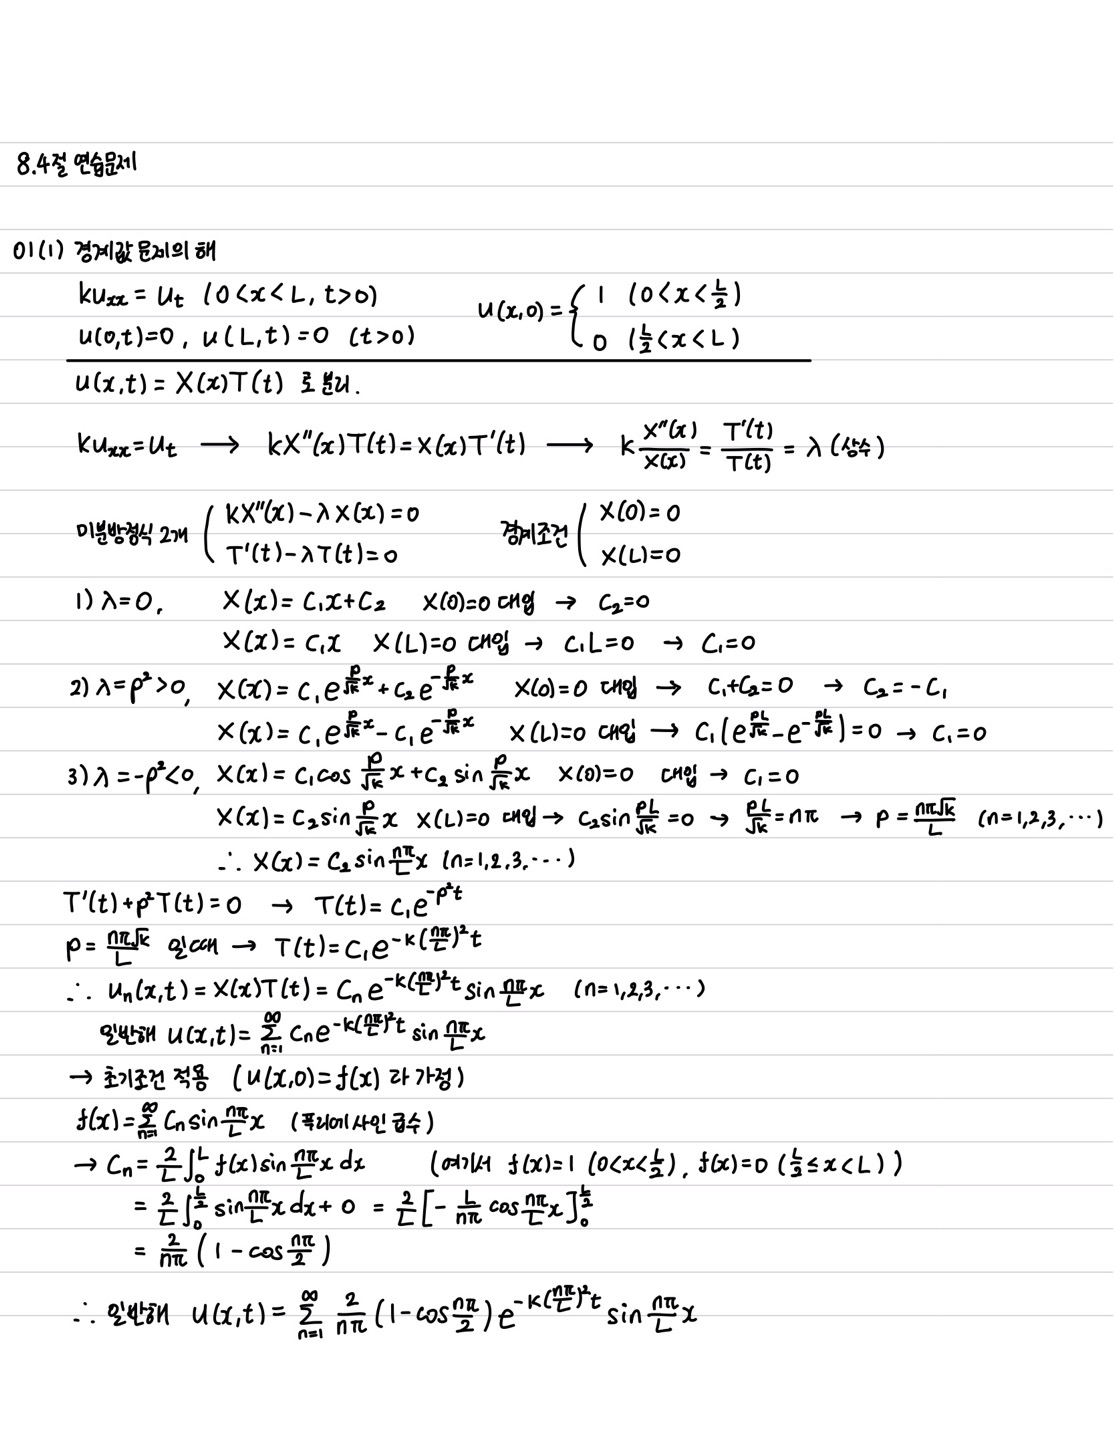 8.4절 연습문제
01(1) 경계값 문제의 해
kuₓₓ = uₜ (0<x<L, t>0)
u(0,t)=0, u(L,t)=0 (t>0)
u(x,0) = { 1 (0<x<L/2)
0 (L/2<x<L)
u(x,t) = X(x)T(t) 로 분리.
kuₓₓ=uₜ → kX''(x)T(t)=X(x)T'(t) → k X''(x)/X(x) = T'(t)/T(t) = λ (상수)
미분방정식 2개 ( kX''(x)-λX(x)=0
T'(t)-λT(t)=0
경계조건 ( X(0)=0
X(L)=0
1) λ=0, X(x)= C₁x+C₂ X(0)=0 대입 → C₂=0
X(x)= C₁x X(L)=0 대입 → C₁L=0 → C₁=0
2) λ=p²>0, X(x)= C₁e^(p/√k x)+C₂e^(-p/√k x) X(0)=0 대입 → C₁+C₂=0 → C₂=-C₁
X(x)= C₁e^(p/√k x)-C₁e^(-p/√k x) X(L)=0 대입 → C₁(e^(pL/√k)-e^(-pL/√k))=0 → C₁=0
3) λ=-p²<0, X(x)= C₁cos p/√k x+C₂ sin p/√k x X(0)=0 대입 → C₁=0
X(x)= C₂sin p/√k x X(L)=0 대입 → C₂sin pL/√k =0 → pL/√k=nπ → p= nπ√k/L (n=1,2,3,⋯)
∴ X(x)= C₂ sin nπ/L x (n=1,2,3,⋯)
T'(t)+p²T(t)=0 → T(t)= C₁e^(-p²t)
p= nπ√k/L 일때 → T(t)= C₁e^(-k(nπ/L)²t)
∴ uₙ(x,t) = X(x)T(t) = Cₙe^(-k(nπ/L)²t) sin nπ/L x (n=1,2,3,⋯)
일반해 u(x,t)= ∑_(n=1)^∞ Cₙe^(-k(nπ/L)²t) sin nπ/L x
→ 초기조건 적용 (u(x,0)=f(x) 라 가정)
f(x)=∑_(n=1)^∞ Cₙ sin nπ/L x (푸리에 사인 급수)
→ Cₙ = 2/L ∫₀^L f(x)sin nπ/L x dx (여기서 f(x)=1 (0<x<L/2), f(x)=0 (L/2≤x<L))
= 2/L ∫₀^(L/2) sin nπ/L x dx + 0 = 2/L [- L/nπ cos nπ/L x]₀^(L/2)
= 2/nπ (1-cos nπ/2)
∴ 일반해 u(x,t)= ∑_(n=1)^∞ 2/nπ (1-cos nπ/2) e^(-k(nπ/L)²t) sin nπ/L x